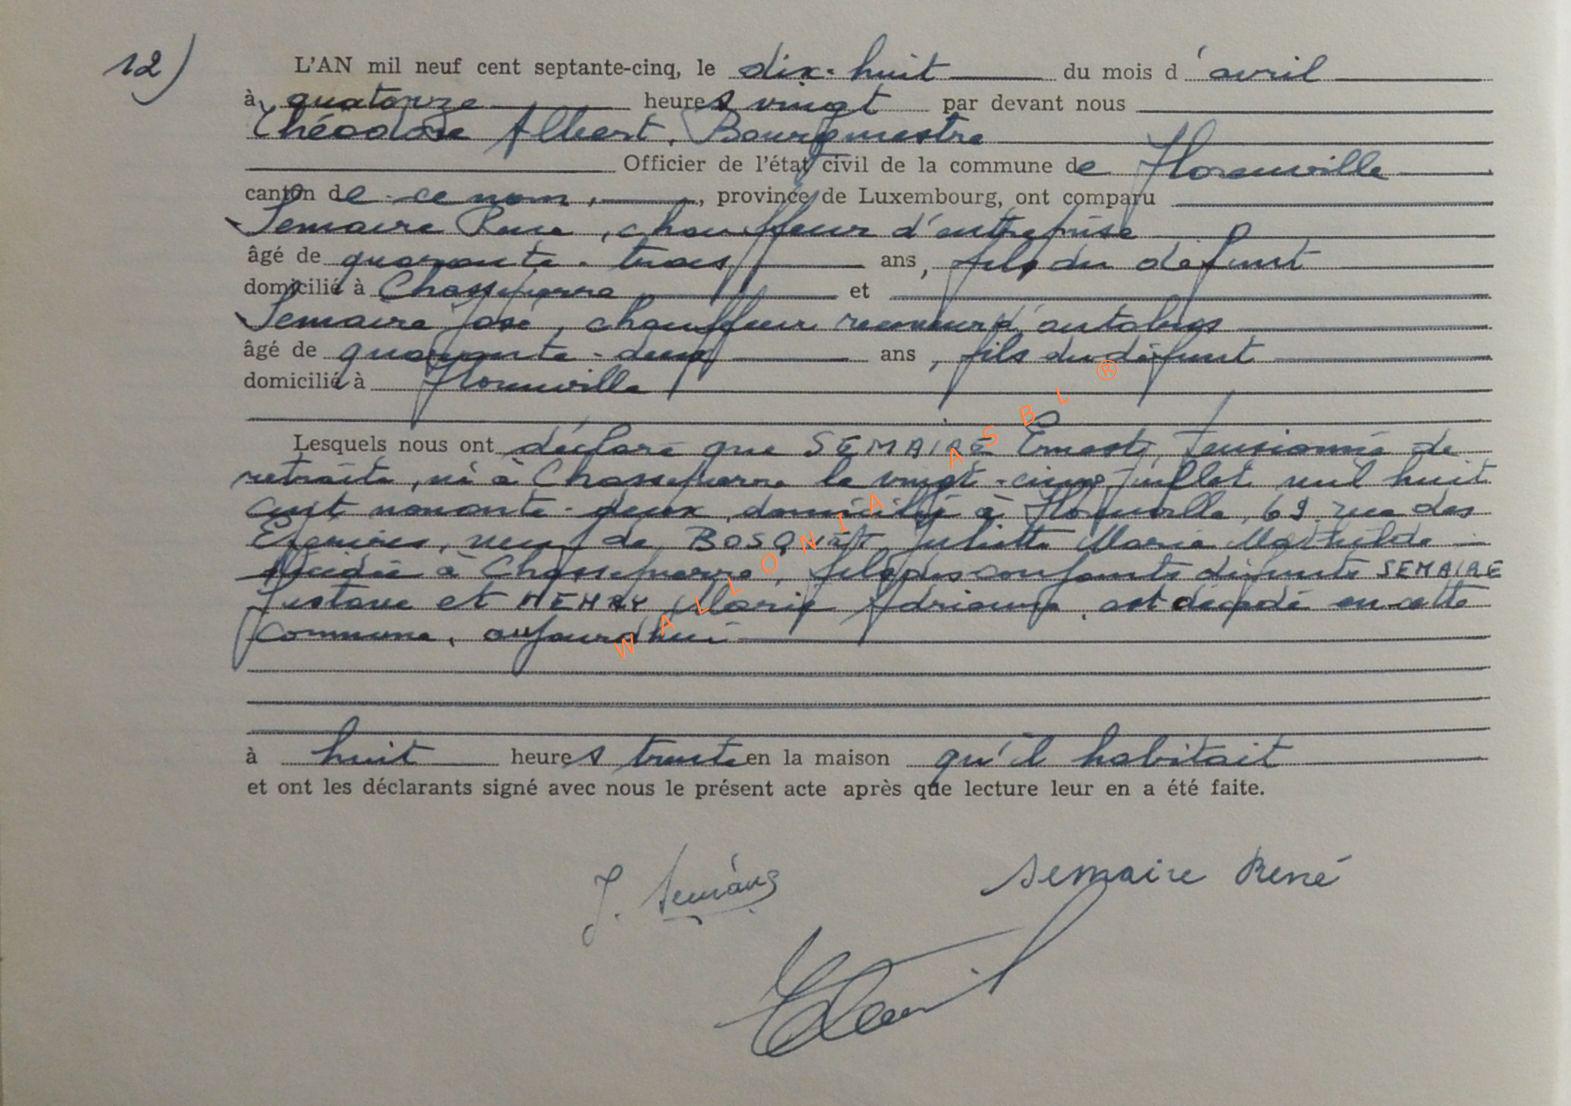 12)
L'AN mil neuf cent septante-cinq, le dix-huit du mois d'avril
à quatorze heures vingt par devant nous
Théodore Albert, Bourgmestre
Officier de l'état civil de la commune de Florenville
canton de ce nom, , province de Luxembourg, ont comparu
Semaire René, chauffeur d'entreprise
âgé de quarante-trois ans, fils du défunt
domicilié à Chassepierre et
Semaire José, chauffeur receveur d'autobus
âgé de quarante-deux ans, fils du défunt
domicilié à Florenville
Lesquels nous ont déclaré que SEMAIRE Ernest, pensionné de
retraite, né à Chassepierre le vingt-cinq juillet mil huit
cent nonante-deux, domicilié à Florenville, 69 rue des
Epinires, veuf de BOSQUET, Juliette Marie Mathilde
décédée à Chassepierre, fils des conjoints défunts SEMAIRE
Gustave et HENRY Marie Adrienne, est décédé en cette
commune, aujourd'hui
à huit heures trente en la maison qu'il habitait
et ont les déclarants signé avec nous le présent acte après que lecture leur en a été faite.
J. Semaire
Semaire René
WALLONIA ASBL ®